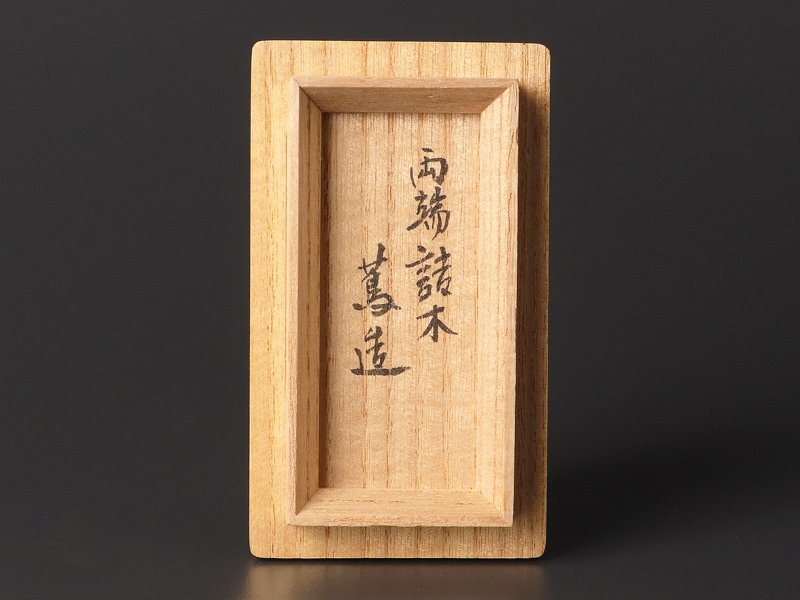 両端詰木
蔦造